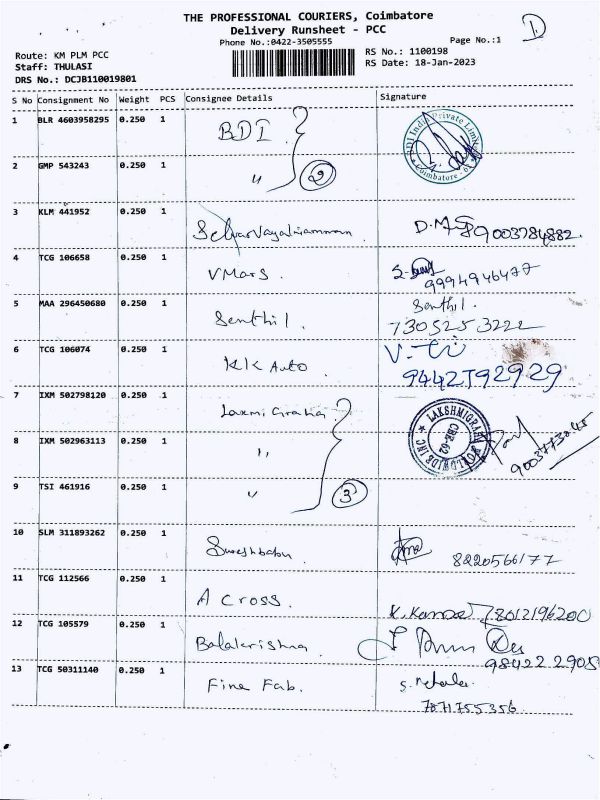 THE PROFESSIONAL COURIERS, Coimbatore
Delivery Runsheet - PCC
Phone No.:0422-3505555
Page No.:1
Route: KM PLM PCC
Staff: THULASI
DRS No.: DCJB110019801
RS No.: 1100198
RS Date: 18-Jan-2023
S No Consignment No Weight PCS Consignee Details Signature
1 BLR 4603958295 0.250 1 BDI
2 GMP 543243 0.250 1 " 2
3 KLM 441952 0.250 1 9003784882
4 TCG 106658 0.250 1 VMars. 9994946477
5 MAA 296450680 0.250 1 Senthil. Senthil.
7305253222
6 TCG 106074 0.250 1 KK Auto
9442792929
7 IXM 502798120 0.250 1 Laxmi Graha LAKSHMIGRAHA WORLDWIDE INC
CBE-02
8 IXM 502963113 0.250 1 "
9 TSI 461916 0.250 1 " 3
10 SLM 311893262 0.250 1 Sureshbabu. 8220566177
11 TCG 112566 0.250 1 A Cross.
12 TCG 105579 0.250 1 Balakrishna
13 TCG 50311140 0.250 1 Fine Fab.
7871755356